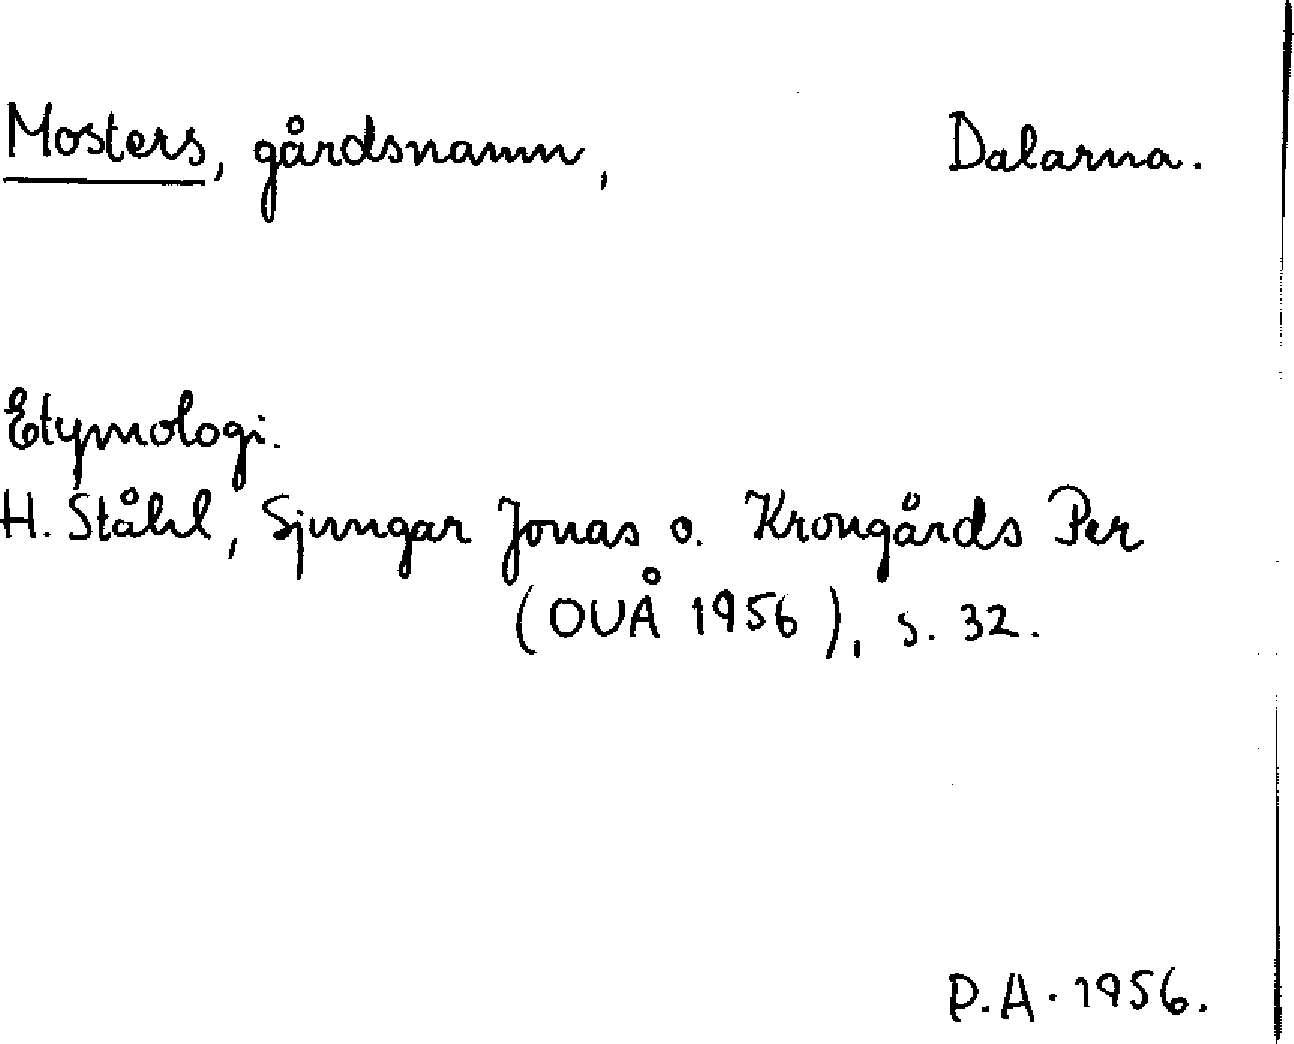 Mosters, gårdsnamn, Dalarna.
Etymologi.
H. Ståhl, Sjungar Jonas o. Krongårds Per
(OUÅ 1956), s. 32.
P.A. 1956.